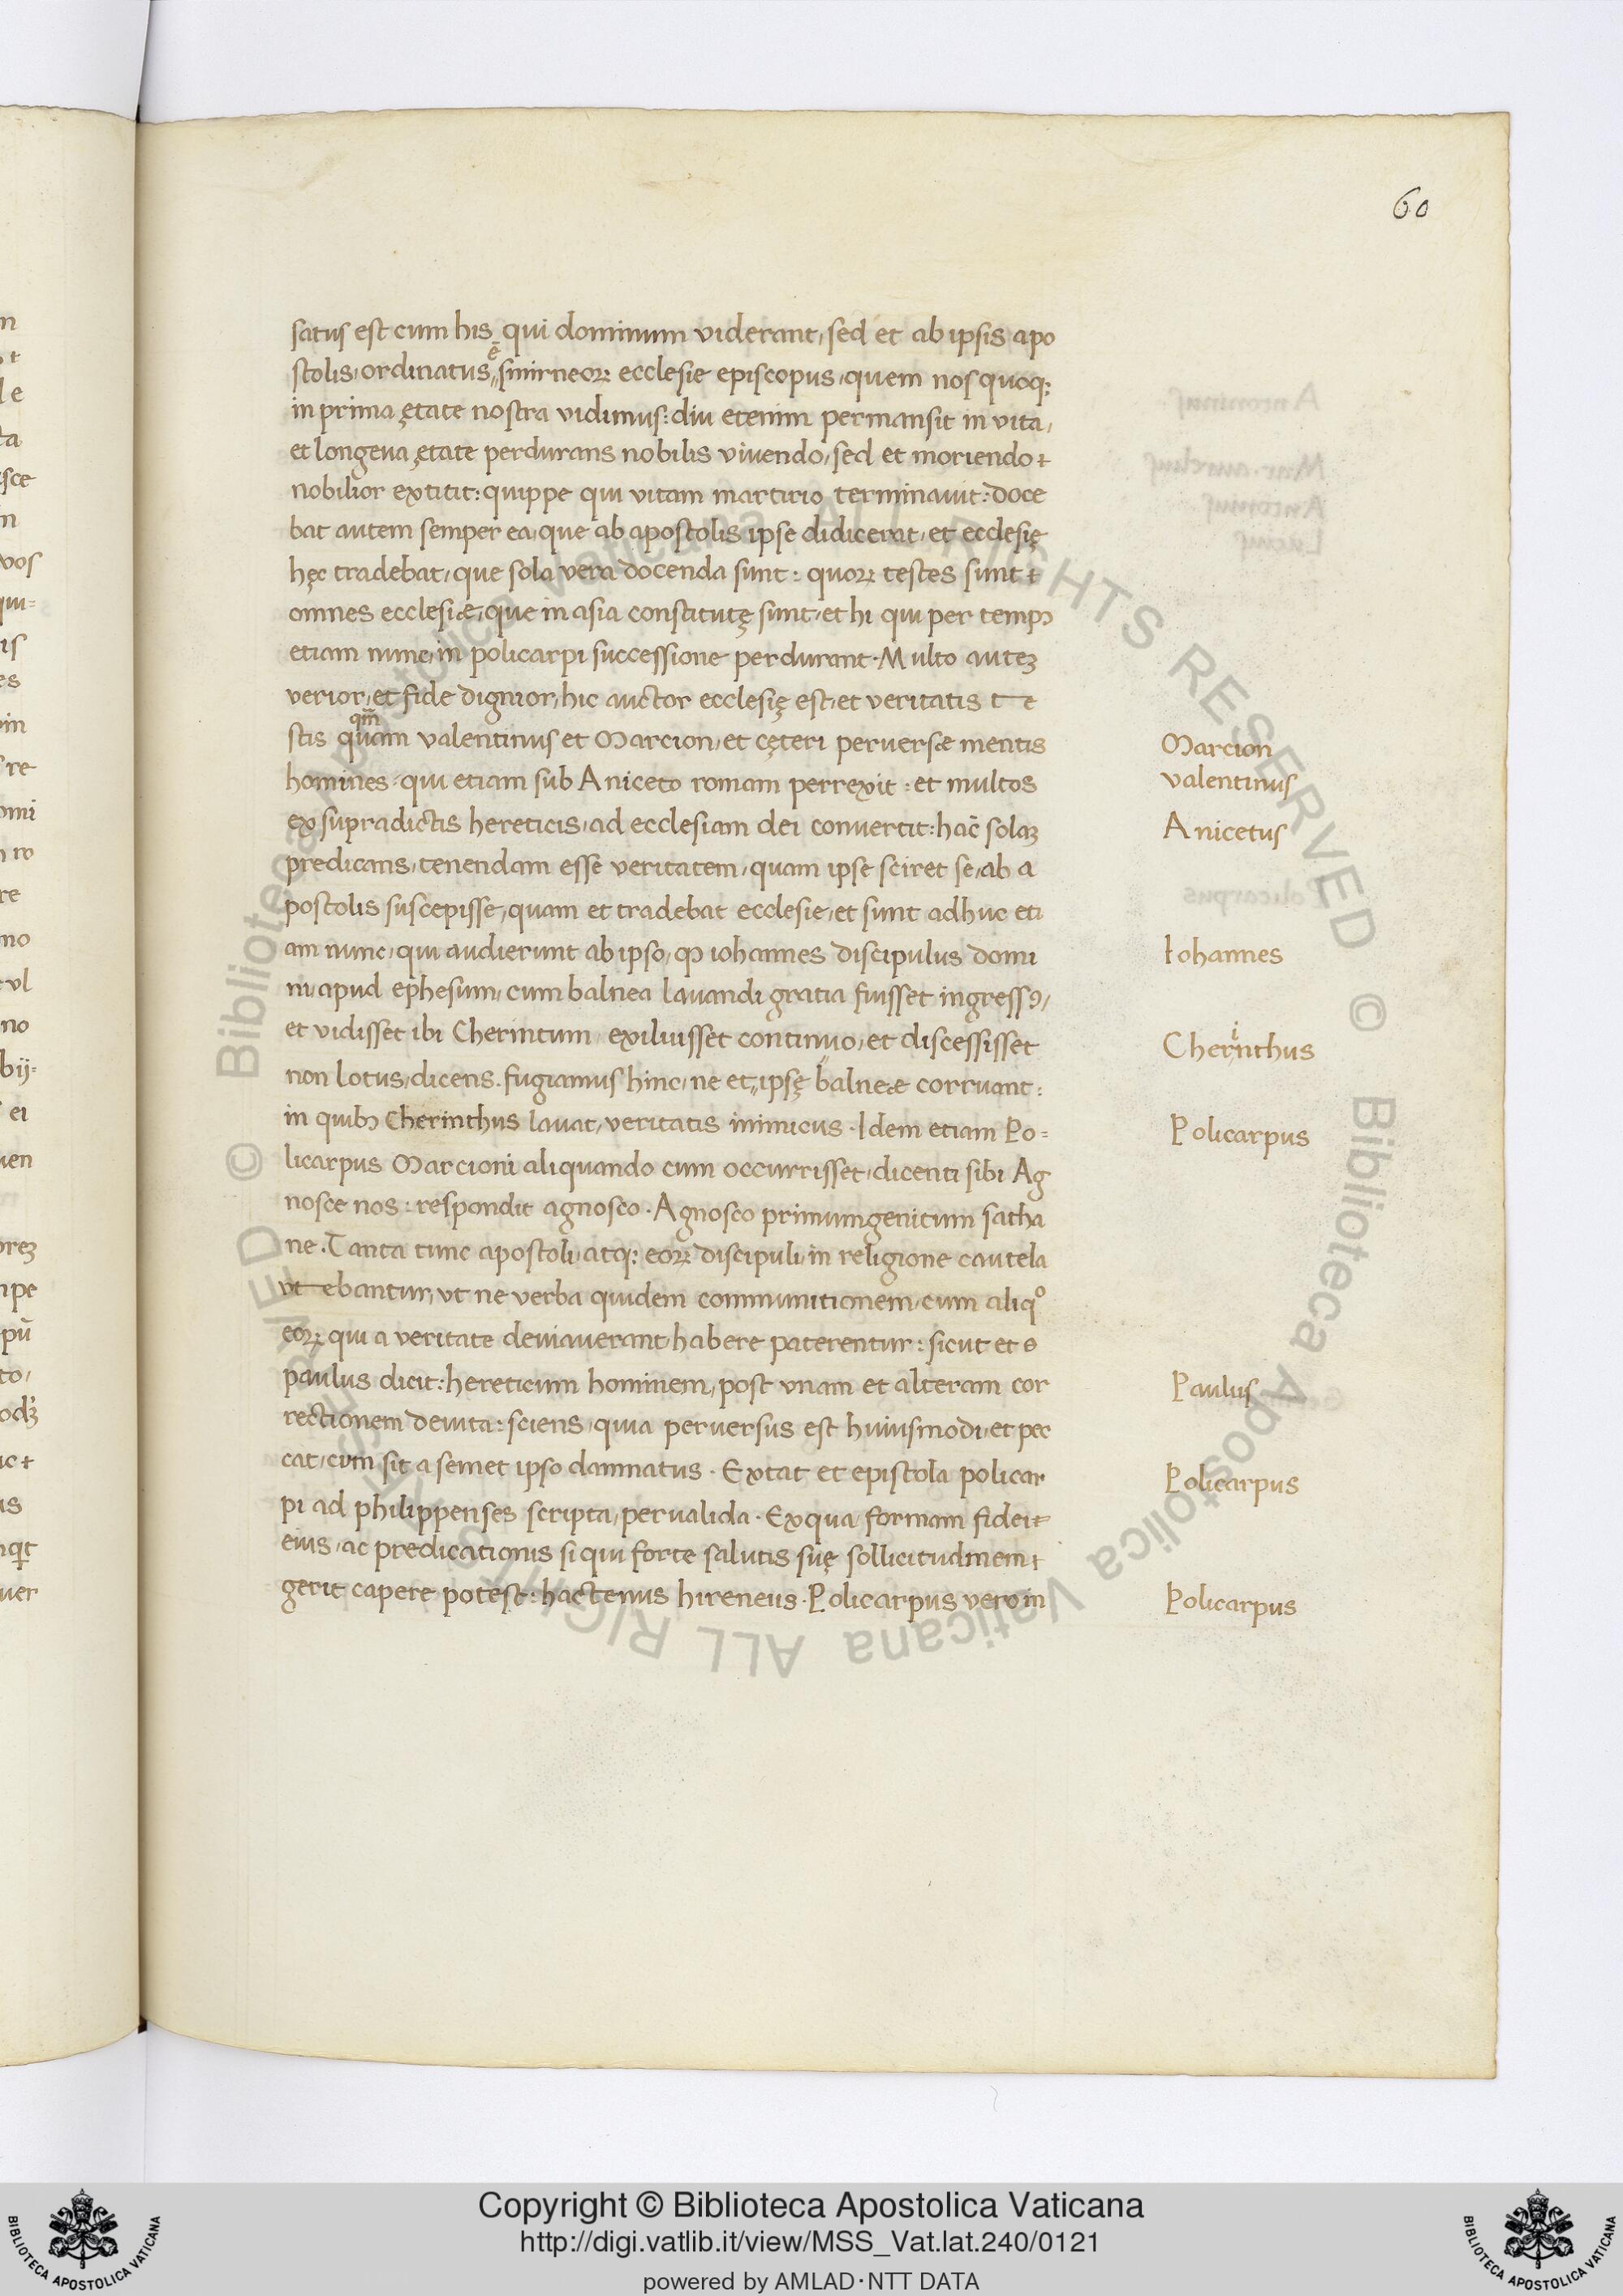 60
satus est cum his, qui dominum viderant, sed et ab ipsis apo
stolis, ordinatus ē smirneoꝝ ecclesie episcopus, quem nos quoqꝫ
in prima ętate nostra vidimus: diu etenim permansit in vita,
et longeua ętate perdurans nobilis viuendo, sed et moriendo
nobilior extitit: quippe qui vitam martirio terminauit: doce
bat autem semper ea, que ab apostolis ipse didicerat, et ecclesię
hęc tradebat, que sola vera docenda sunt: quoꝝ testes sunt
omnes ecclesiæ, que in asia constitutę sunt, et hi qui per tempꝰ
etiam nunc, in policarpi successione perdurant. Multo auteꝫ
verior, et fide dignior, hic auctor ecclesię est, et veritatis te
stis quam qm̄ valentinus et Marcion, et cęteri peruersæ mentis
homines. qui etiam sub Aniceto romam perrexit: et multos
ex supradictis hereticis, ad ecclesiam dei conuertit: hac̄ solaꝫ
predicans, tenendam esse veritatem, quam ipse sciret se, ab a
postolis suscepisse, quam et tradebat ecclesie, et sunt adhuc eti
am nunc, qui audierunt ab ipso, ꝙ iohannes discipulus domi
ni, apud ephesum, cum balnea lauandi gratia fuisset ingressꝰ,
et vidisset ibi Cherintum, exiliuisset continuo, et discessisset
non lotus, dicens. fugiamus hinc, ne et, ipsę balneæ corruant:
in quibꝰ Cherinthus lauat, veritatis inimicus. Idem etiam Po=
licarpus Marcioni aliquando cum occurrisset, dicenti sibi Ag
nosce nos: respondit agnosco. Agnosco primumgenitum satha
ne. Tanta tunc apostoli, atqꝫ eoꝝ discipuli, in religione cautela
vtebantur, vt ne verba quidem communitionem, cum aliqͦ
eoꝝ qui a veritate deuiauerant, habere paterentur: sicut et
paulus dicit: hereticum hominem, post vnam et alteram cor
rectionem deuita: sciens, quia peruersus est huiusmodi, et pec
cat, cum sit a semet ipso damnatus. Extat et epistola policar
pi ad philippenses scripta, perualida. Ex qua formam fidei
eius, ac predicationis si qui forte salutis suę sollicitudinem
gerit capere potest: hactenus hireneus. Policarpus vero in
Marcion
valentinus
Anicetus
Iohannes
Cherinthus
Policarpus
Paulus
Policarpus
Policarpus
© Biblioteca Apostolica Vaticana ALL RIGHTS RESERVED © Biblioteca Apostolica Vaticana ALL RIGHTS RESERVED
Copyright © Biblioteca Apostolica Vaticana
http://digi.vatlib.it/view/MSS_Vat.lat.240/0121
powered by AMLAD·NTT DATA
BIBLIOTECA APOSTOLICA VATICANA
BIBLIOTECA APOSTOLICA VATICANA